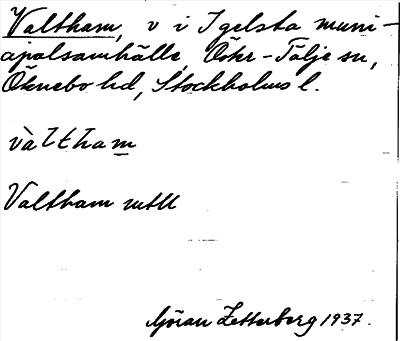 Valtham, v i Igelsta muni-
cipalsamhälle, Östер-Tälje sn,
Öknebo hd, Stockholms l.
vàltham
Valtham mtU
Göran Zetterberg 1937.